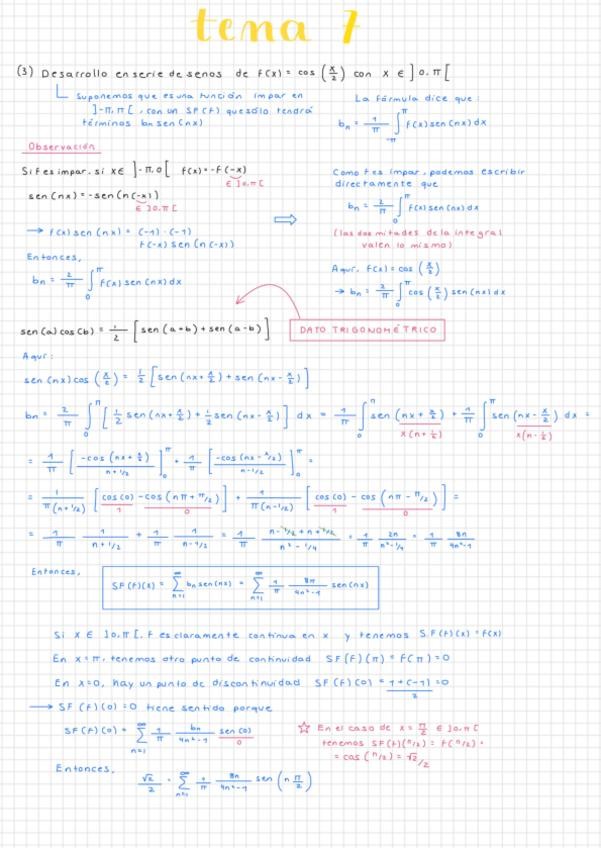 tema 7
(3) Desarrollo en serie de senos de f(x) = cos (x/2) con x ∈ ]0,π[
Suponemos que es una función impar en
]-π,π[, con un SF(f) que sólo tendrá
términos bn sen(nx)
La fórmula dice que:
bn = 1/π ∫_{-π}^{π} f(x) sen(nx) dx
Observación
Si f es impar, si x ∈ ]-π,0[ f(x) = -f(-x)
∈ ]0,π[
sen(nx) = -sen(n(-x))
∈ ]0,π[
→ f(x) sen(nx) = (-1)·(-1)
f(-x) sen(n(-x))
Entonces,
bn = 2/π ∫_0^π f(x) sen(nx) dx
⇒
Como f es impar, podemos escribir
directamente que
bn = 2/π ∫_0^π f(x) sen(nx) dx
(las dos mitades de la integral
valen lo mismo)
Aquí, f(x) = cos (x/2)
→ bn = 2/π ∫_0^π cos (x/2) sen(nx) dx
sen(a)cos(b) = 1/2 [sen(a+b) + sen(a-b)]
DATO TRIGONOMÉTRICO
Aquí:
sen(nx)cos (x/2) = 1/2 [sen(nx+x/2) + sen(nx-x/2)]
bn = 2/π ∫_0^π [1/2 sen(nx+x/2) + 1/2 sen(nx-x/2)] dx = 1/π ∫_0^π sen(nx+x/2) + 1/π ∫_0^π sen(nx-x/2) dx =
x(n+1/2) x(n-1/2)
= 1/π [-cos(nx+x/2) / n+1/2]_0^π + 1/π [-cos(nx-x/2) / n-1/2]_0^π =
= 1/π(n+1/2) [cos(0) - cos(nπ+π/2)] + 1/π(n-1/2) [cos(0) - cos(nπ-π/2)] =
1 0 1 0
= 1/π 1/n+1/2 + 1/π 1/n-1/2 = 1/π n-1/2+n+1/2 / n²-1/4 = 1/π 2n/n²-1/4 = 1/π 8n/4n²-1
Entonces,
SF(f)(x) = Σ_{n=1}^∞ bn sen(nx) = Σ_{n=1}^∞ 1/π 8n/4n²-1 sen(nx)
Si x ∈ ]0,π[, f es claramente continua en x y tenemos S.F(f)(x) = f(x)
En x=π, tenemos otro punto de continuidad SF(f)(π) = f(π) = 0
En x=0, hay un punto de discontinuidad SF(f)(0) = 1+(-1)/2 = 0
→ SF(f)(0) = 0 tiene sentido porque
SF(f)(0) = Σ_{n=1}^∞ 1/π 8n/4n²-1 sen(0)
0
☆ En el caso de x = π/2 ∈ ]0,π[
tenemos SF(f)(π/2) = f(π/2) =
= cos (π/4) = √2/2
Entonces,
√2/2 = Σ_{n=1}^∞ 1/π 8n/4n²-1 sen (n π/2)